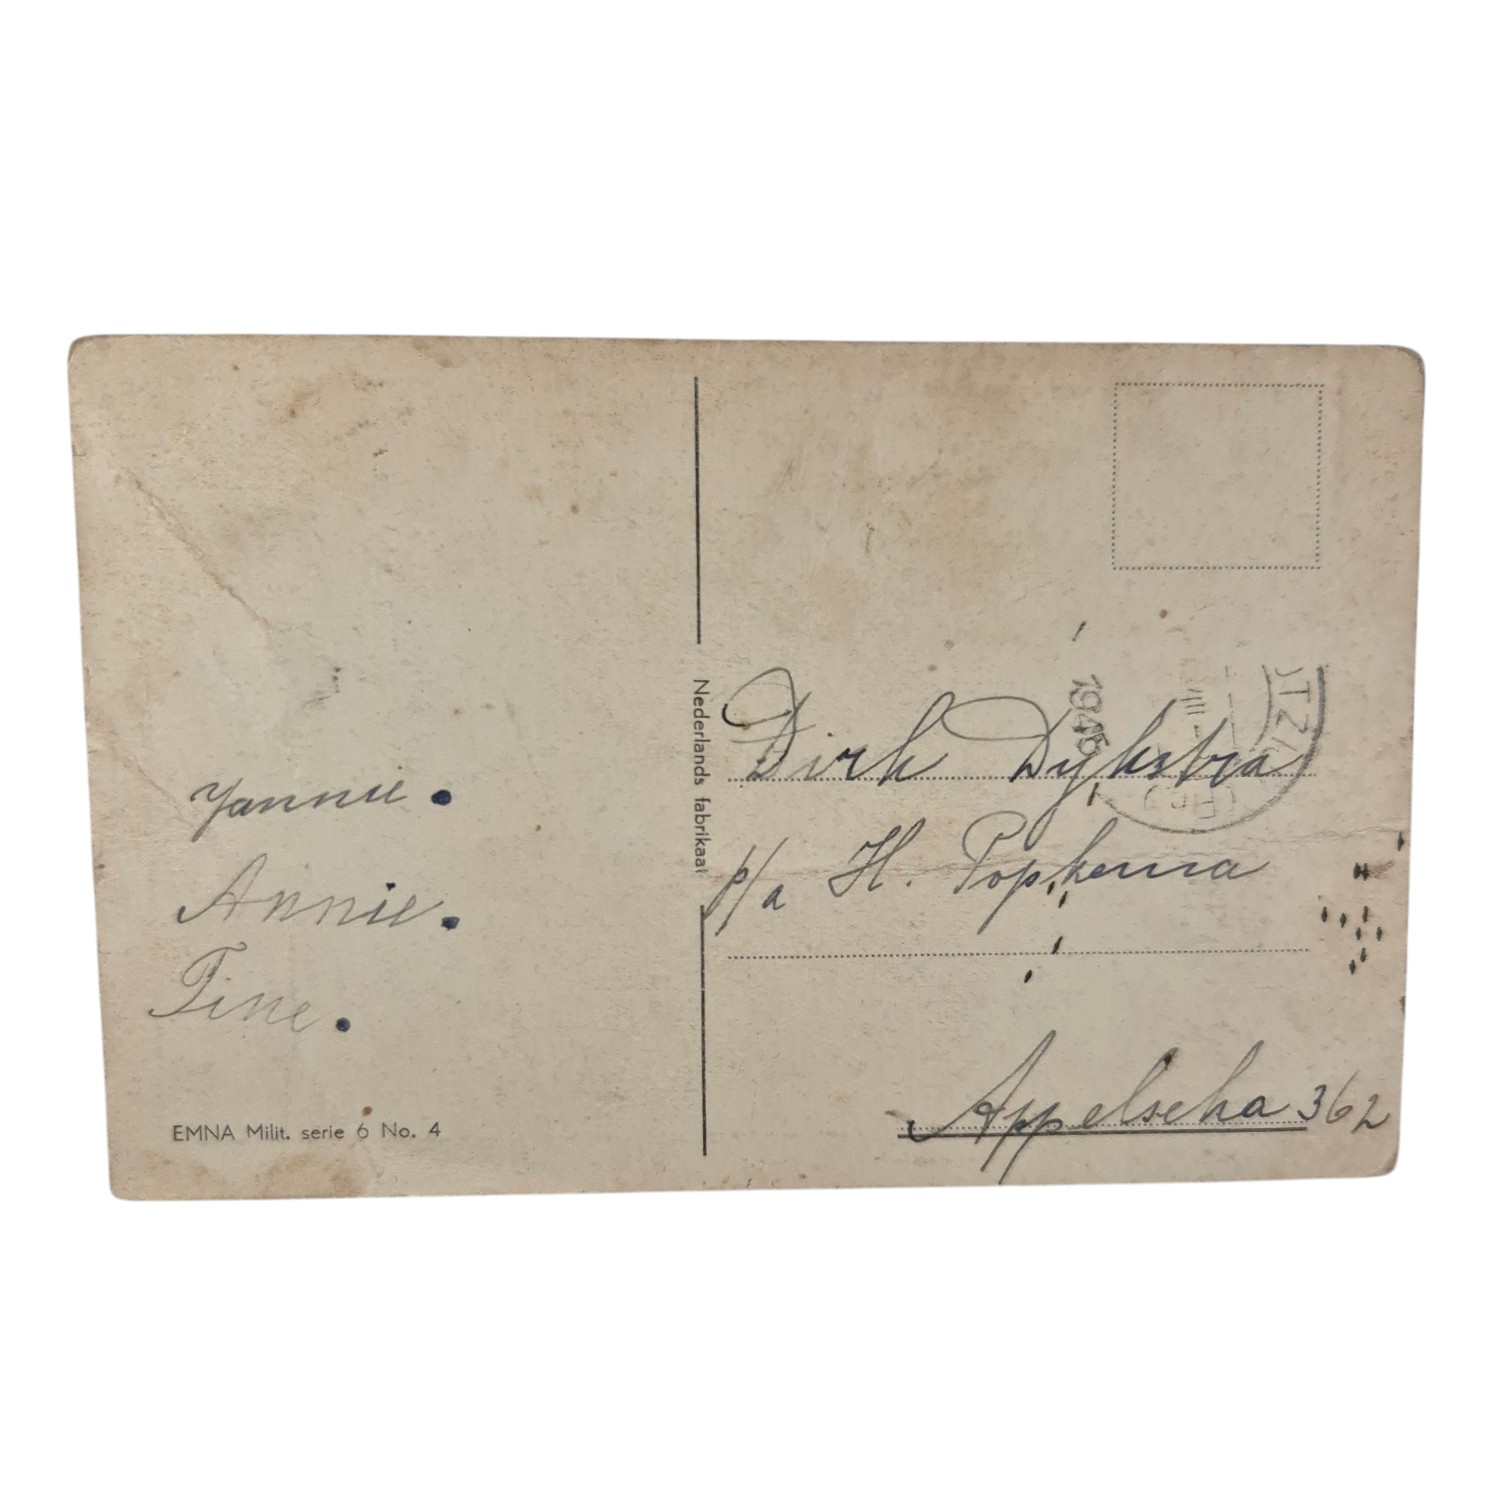 Yannie.
Annie.
Tine.
EMNA Milit. serie 6 No. 4
Nederlands fabrikaat
1946
VIII
Dirk Dykstra
p/a H. Popkema
Appelscha 362